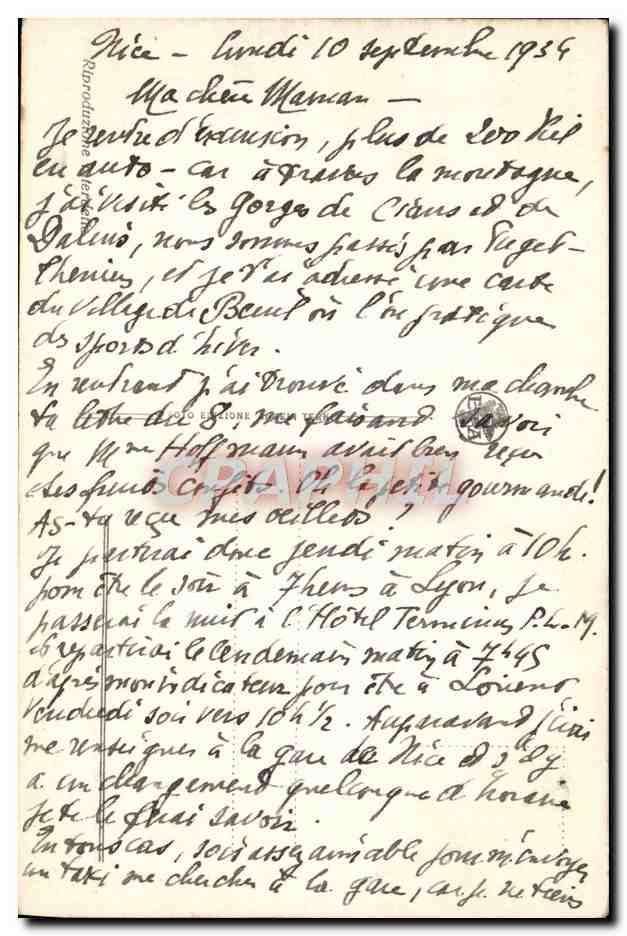 Nice - lundi 10 septembre 1934
Ma chère Maman -
Je rentre d'excursion, plus de 200 kil
en auto-car à travers la montagne,
j'ai visité les Gorges de Cians et de
Daluis, nous sommes passés par Puget-
Théniers, et je t'ai adressé une carte
du village de Beuil où l'on pratique
des sports d'hiver.
En rentrant j'ai trouvé dans ma chambre
ta lettre du 8, me faisant savoir
FOTO EDIZIONE TERNI
que Mme Hoffmann avait bien reçu
ses fruits confits. Oh la petite gourmande!
CPAPHIL
As-tu reçu mes oeillets?
Je partirai donc jeudi matin à 10h.
pour être le soir à 7 heures à Lyon, je
passerai la nuit à l'Hôtel Terminus P.L.M.
et repartirai le lendemain matin à 7h45
d'après mon indicateur pour être à Lorient
Vendredi soir vers 10h 1/2. Auparavant j'irai
me renseigner à la gare de Nice et s'il y
a un changement quelconque d'horaire
je te le ferai savoir.
En tous cas, sois assez aimable pour m'envoyer
un taxi me chercher à la gare, car je ne tiens
Riproduzione